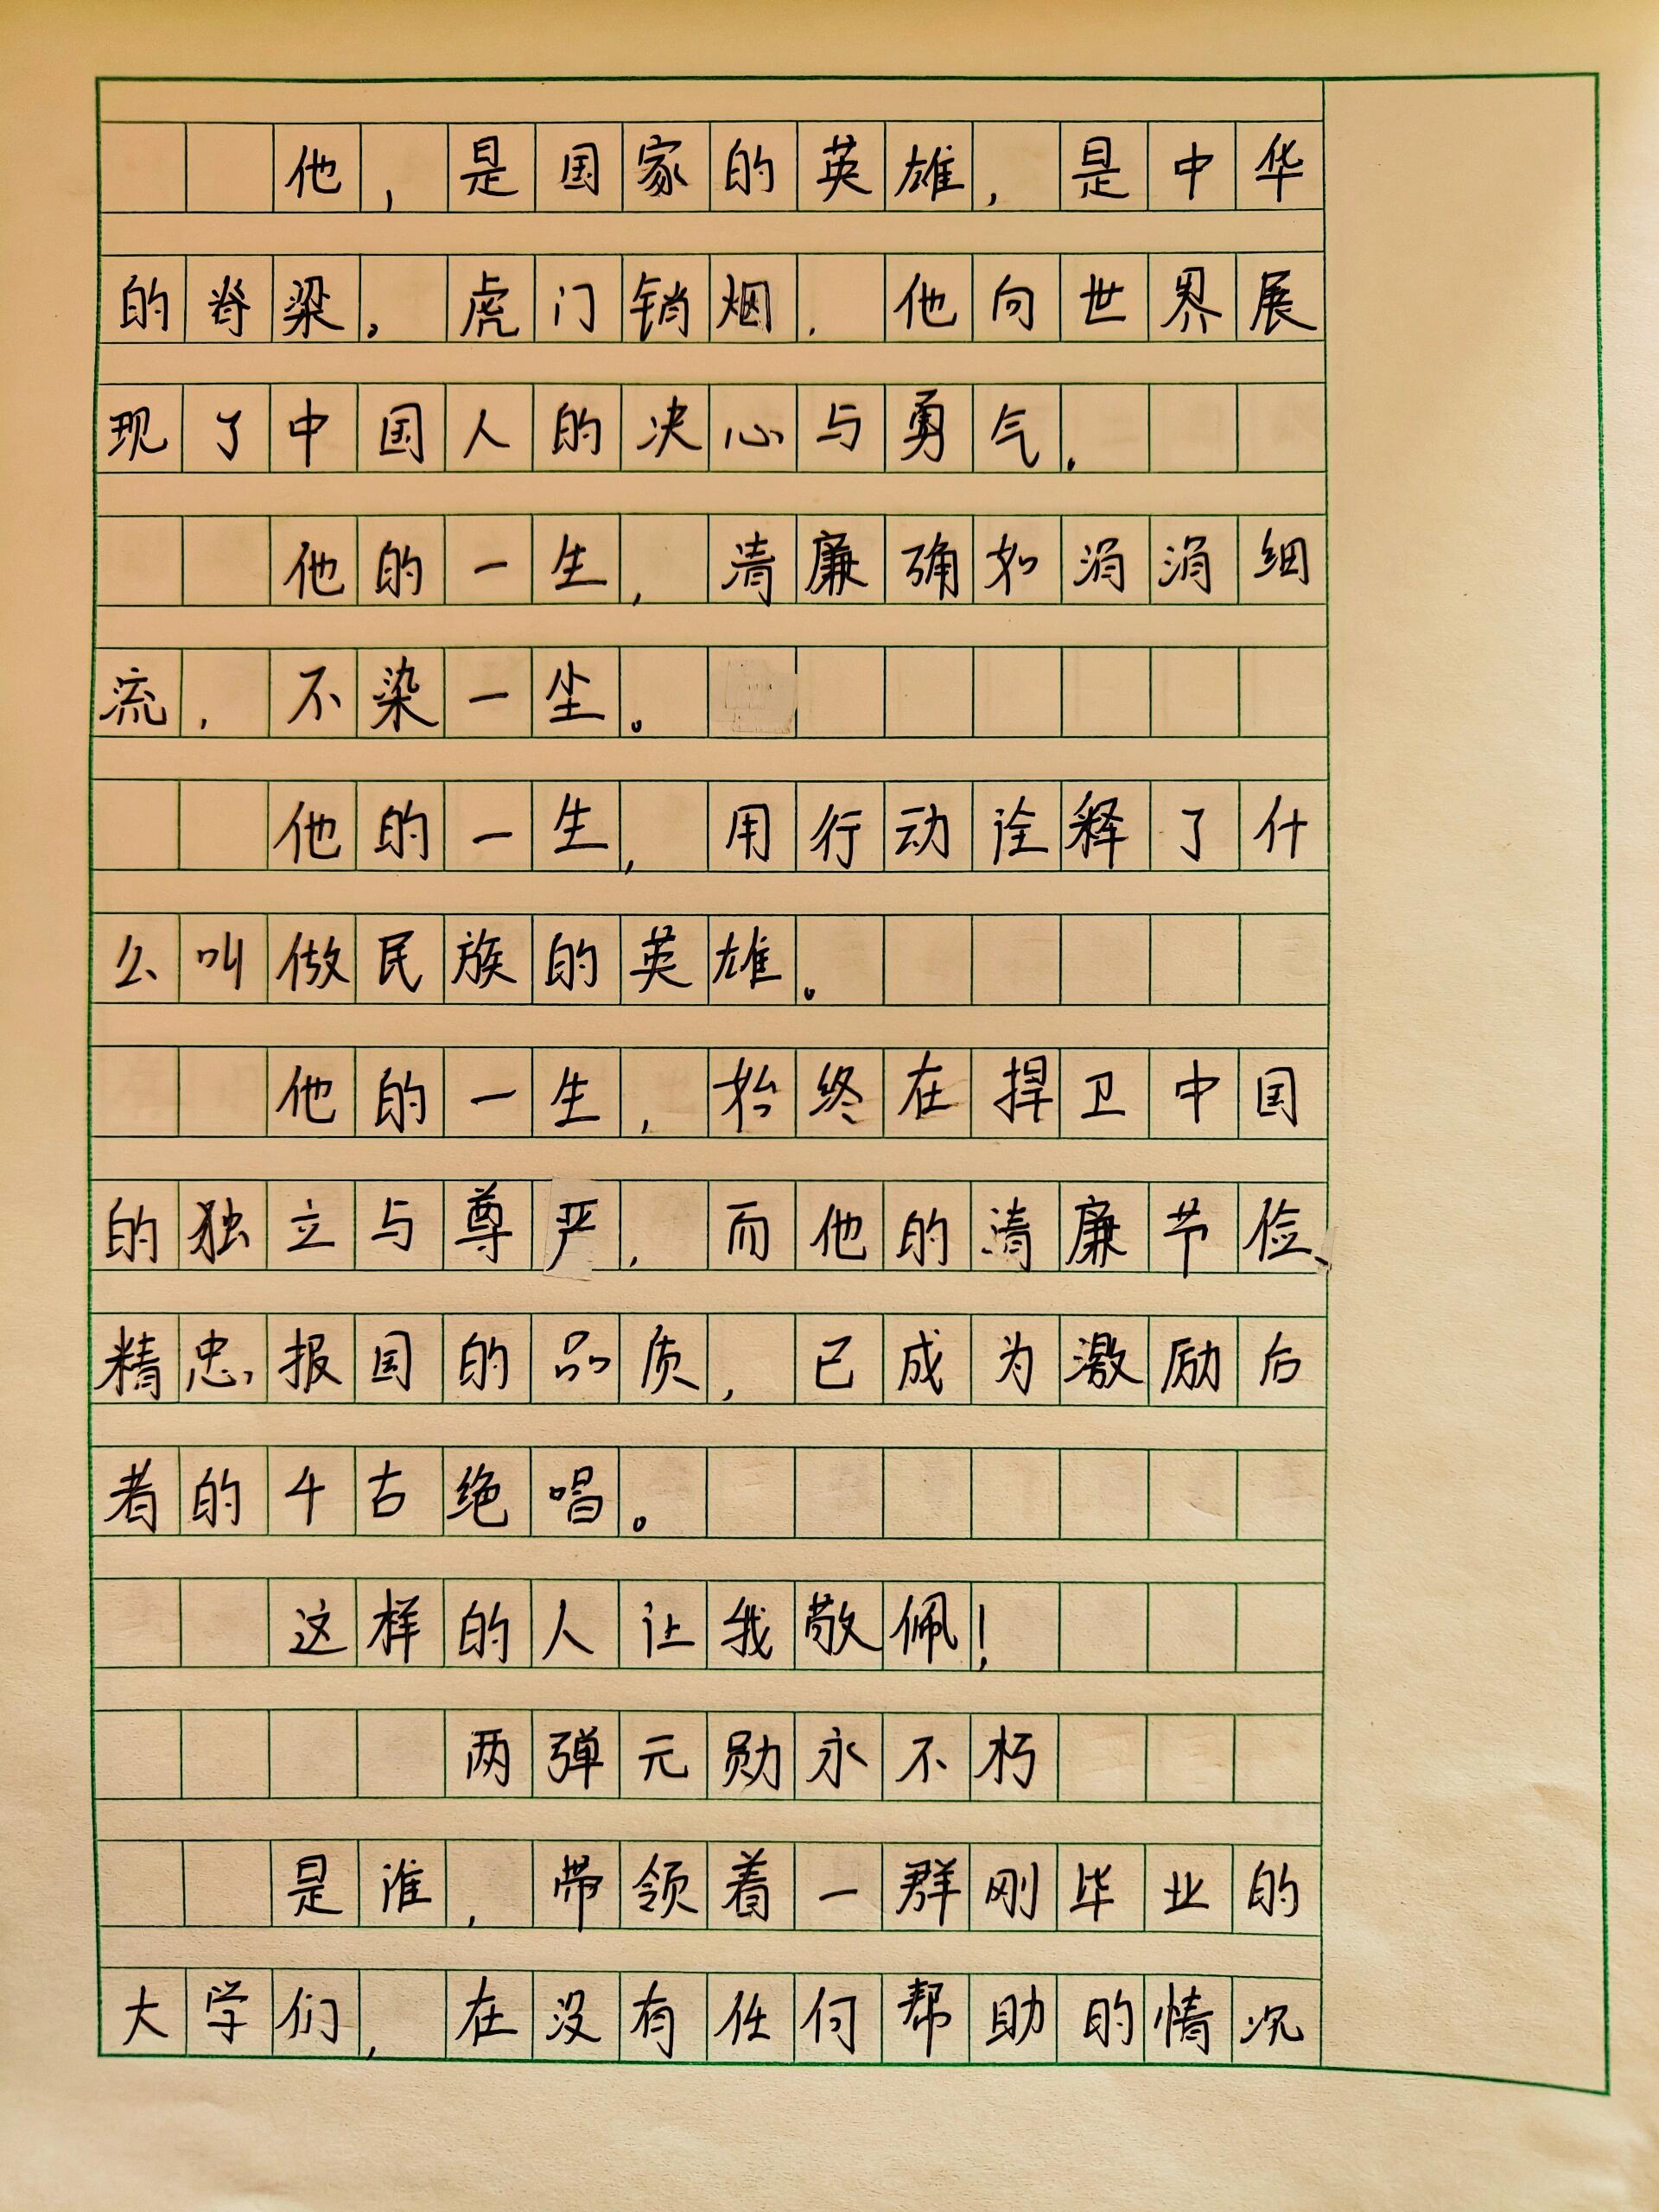 他，是国家的英雄，是中华
的脊梁。虎门销烟，他向世界展
现了中国人的决心与勇气。
他的一生，清廉确如涓涓细
流，不染一尘。
他的一生，用行动诠释了什
么叫做民族的英雄。
他的一生，始终在捍卫中国
的独立与尊严，而他的清廉节俭、
精忠报国的品质，已成为激励后
者的千古绝唱。
这样的人让我敬佩！
两弹元勋永不朽
是谁，带领着一群刚毕业的
大学们，在没有任何帮助的情况